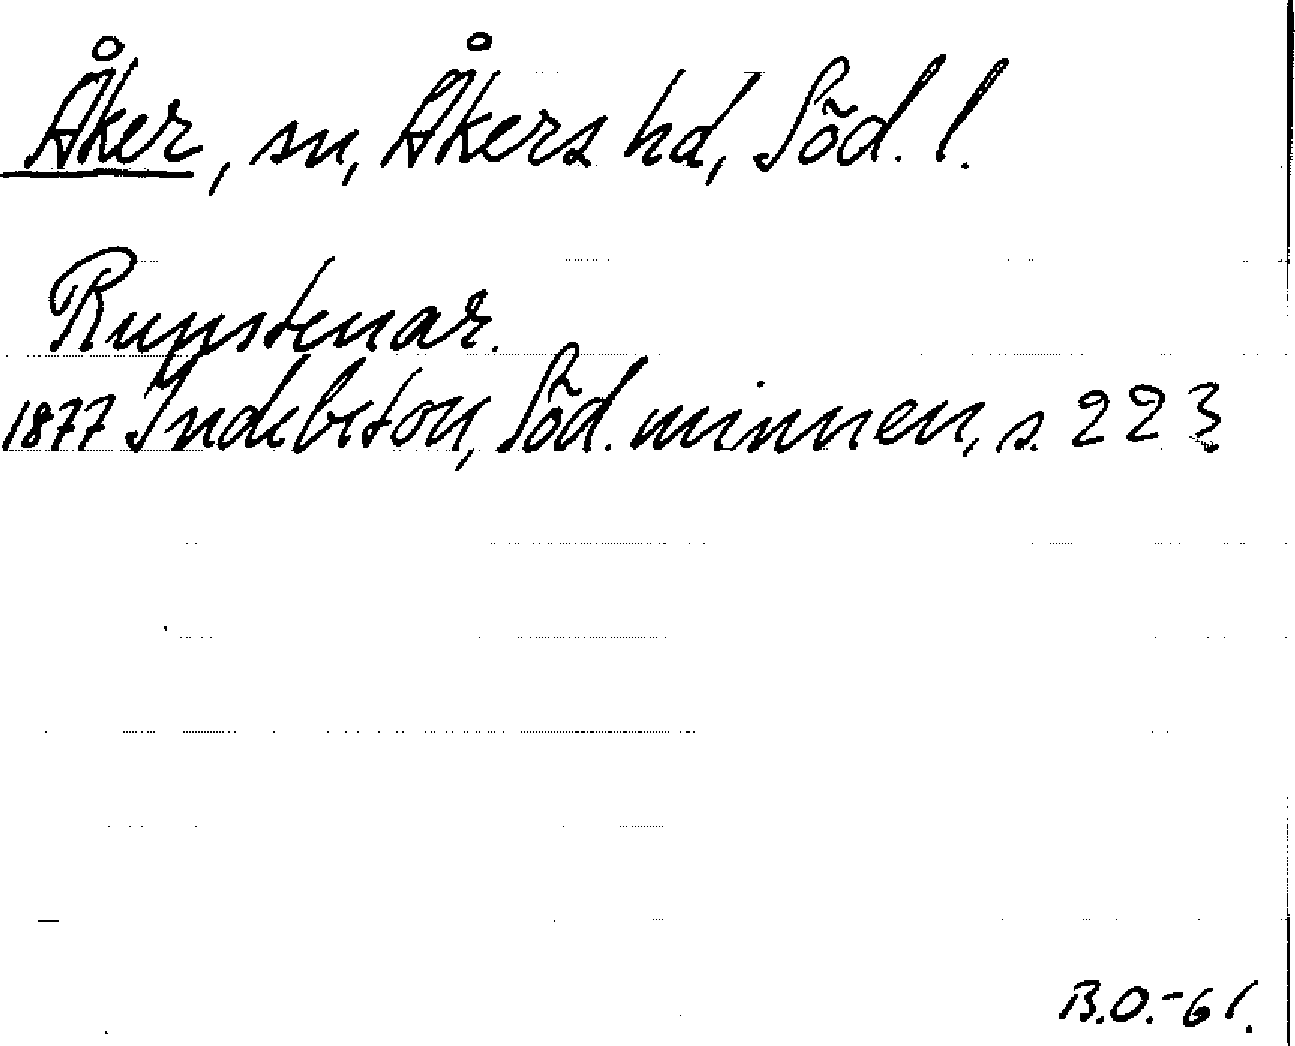 Åker, sn, Åkers hd, Söd. l.
Runstenar.
1877 Indebetou, Söd. minnen, s. 223
B.O.-61.